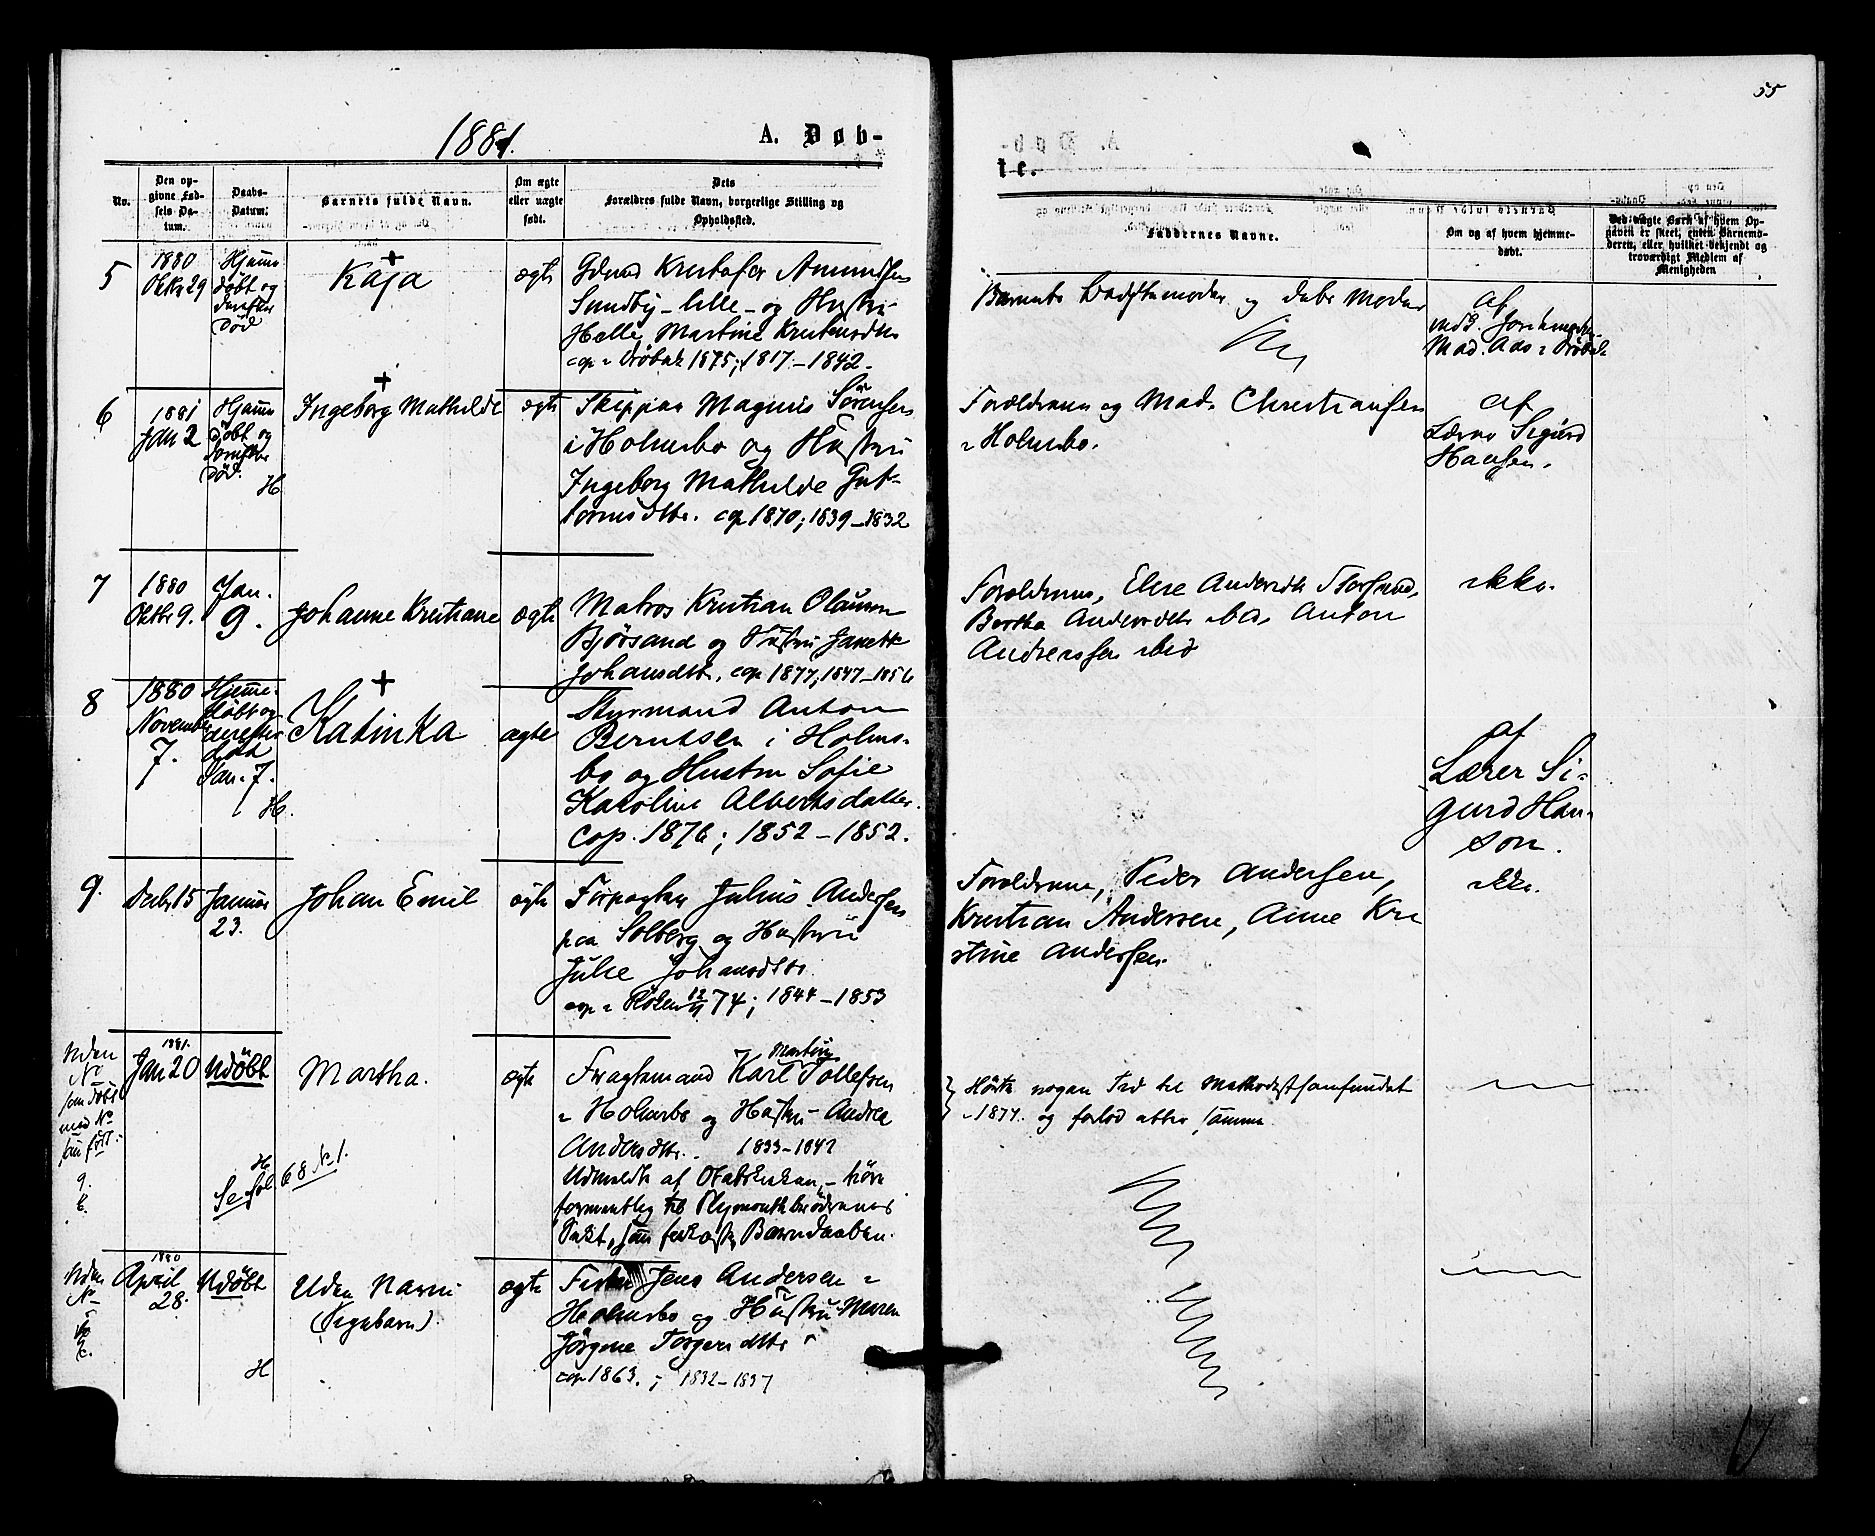 55
1881.
A. Døb-
te.
No.
Den op-
givne Fød-
sels Da-
tum.
Daabs-
Datum.
Barnets fulde Navn.
Om ægte
eller uægte
født.
Dets
Forældres fulde Navn, borgerlige Stilling og
Opholdssted.
Faddernes Navne.
Om og af hvem hjemme-
døbt.
Ved uægte Børn af hvem Op-
gaven er skeet, enten Barnemo-
deren, eller hvilket bekjendt og
troværdigt Medlem af
Menigheden
5
1880
Oktbr 29
Hjemme
døbt og
derefter
død
+
Kaja
ægte
Edvard Kristofer Amundsen
Sundby-lille- og Hustru
Helle Martine Kristensdtr
cop i Drøbak 1875; 1817-1842.
Barnets Bedstemoder og dets Moder
af
Mad. Aas i Drøbak
6
1881
Jan 2
Hjemme
døbt og
derefter
død.
H
+
Ingeborg Mathilde
ægte
Skipper Magnus Sørensen
i Holmsbo og Hustru
Ingeborg Mathilde Gut-
tormsdtr. cop 1870; 1839-1832
Forældrene og Mad. Christiansen
i Holmsbo.
af
Lærer Sigurd
Hansen.
7
1880
Oktbr 9.
Jan.
9.
Johanne Kristiane
ægte
Matros Kristian Olausen
Bjørsand og Hustru Janette
Johansdtr. cop 1877; 1847-1856
Forældrene, Elise Andersdtr Storsand,
Berthe Andersdtr ibid, Anton
Andreassen ibid
ikke.
8
1880
November
7.
Hjemme-
døbt og
derefter
død
Jan. 7.
H.
+
Katinka
ægte
Styrmand Anton
Berntsen i Holms-
bo og Hustru Sofie
Karoline Albertsdatter.
Cop. 1876; 1852-1852.
af
Lærer Si-
gurd Han-
son.
9.
Decbr 15
Januar
23.
Johan Emil
ægte
Forpagter Julius Andersen
paa Solberg og Hustru
Julie Johansdtr.
cop i Røken 74; 1844-1853
Forældrene, Peder Andersen,
Kristian Andersen, Anne Kri
stine Andersen.
ikke.
Uden
No
som døbt
med No
som født.
1881.
Jan 20
Udøbt
H
Se fol 68 No 1.
Martha.
ægte
Fragtemand Karl Martin Tollefsen
i Holmsbo og Hustru Andrea
Andersdtr. 1833-1842
Udmeldte af Statskirken, - hører
formentlig til Plymouthbrødrenes
Sekt, som forkaster Barnedaaben.
Hørte nogen Tid til Methodistsamfundet
i 1877. og forlod atter samme.
Uden
No
1880
April
28.
Udøbt
H
Uden Navn
(Pigebarn).
ægte
Fisker Jens Andersen i
Holmsbo og Hustru Maren
Jørgine Torgersdtr
cop 1863. ; 1832-1837